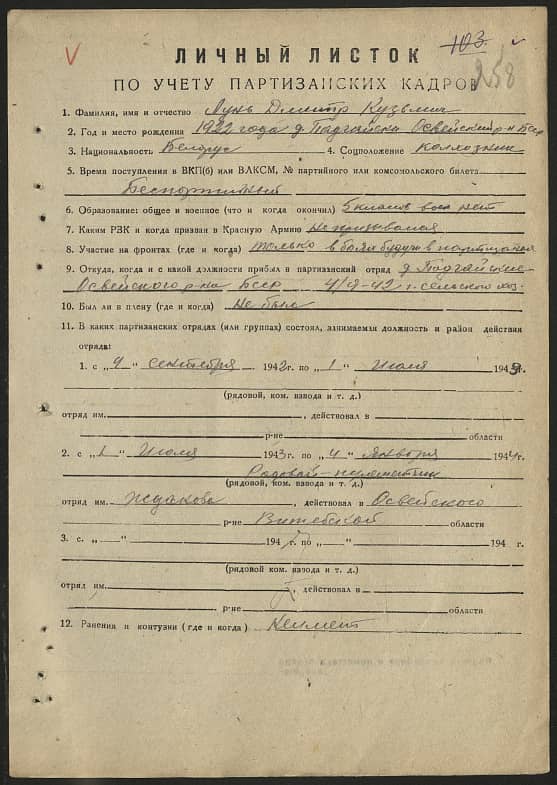 103.
258
ЛИЧНЫЙ ЛИСТОК
ПО УЧЕТУ ПАРТИЗАНСКИХ КАДРОВ
1. Фамилия, имя и отчество Лунь Дмитр Кузьмич
2. Год и место рождения 1922 года д. Подгайски Освейский р-н Бсср
3. Национальность Белорус 4. Соцположение колхозник
5. Время поступления в ВКП(б) или ВЛКСМ, № партийного или комсомольского билета
Беспортийный
6. Образование: общее и военное (что и когда окончил) 5 класов нет
7. Каким РЗК и когда призван в Красную Армию не призывался
8. Участие на фронтах (где и когда) только в боях будучи в партизанах
9. Откуда, когда и с какой должности прибыл в партизанский отряд д. Подгайские
Освейского р-на Бсср 4/9-42 г. сельского хоз.
10. Был ли в плену (где и когда) не был
11. В каких партизанских отрядах (или группах) состоял, занимаемая должность и район действия
отряда:
1. с „4“ сентября 1942 г. по „1“ Июля 1943 г.
(рядовой, ком. взвода и т. д.)
отряд им. , действовал в
р-не области
2. с „1“ Июля 1943 г. по „4“ января 1944 г.
Родовой-пулеметчик
(рядовой, ком. взвода и т. д.)
отряд им. , действовал в Освейского
р-не Витебской области
3. с. „ “ 194 г. по „ “ 194 г.
(рядовой ком. взвода и т. д.)
отряд им. , действовал в
р-не области
12. Ранения и контузии (где и когда)